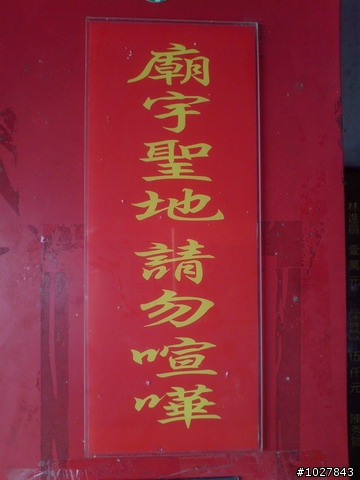 廟宇聖地請勿喧嘩
#1027843